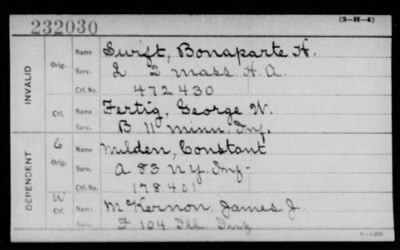 232030
(3-H-4)
INVALID
Orig.
Name Swift, Bonaparte H.
Serv. L 2 Mass. H. A.
Ctf. No. 472430
Ctf.
Name Fertig, George W.
Serv. B 11 Minn. Inf.
DEPENDENT
C
Orig.
Name Milden, Constant
Serv. A 83 N.Y. Inf.
Ctf. No. 178401
W
Ctf.
Name McKernon, James J.
Serv. F 104 Ill.